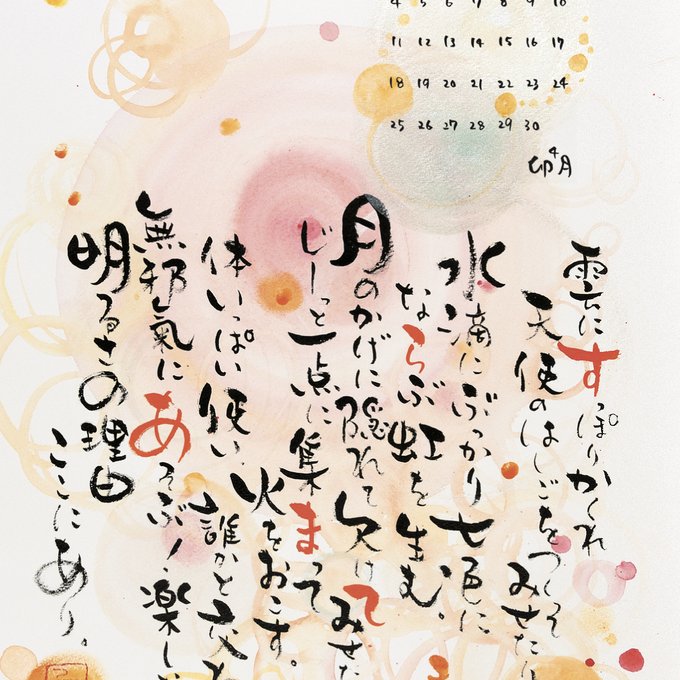 4 5 6 7 8 9 10
11 12 13 14 15 16 17
18 19 20 21 22 23 24
25 26 27 28 29 30
卯4月
雲にすっぽりかくれ
天使のはしごをつくってみせたり
水滴にぶつかり七色に
ならぶ虹を生む、
月のかげに隠れて欠けてみせた
じーっと一点に集まって
火をおこす。
体いっぱい使い、誰かと
無邪氣にあそぶ!楽し
明るさの理由
ここにあり。